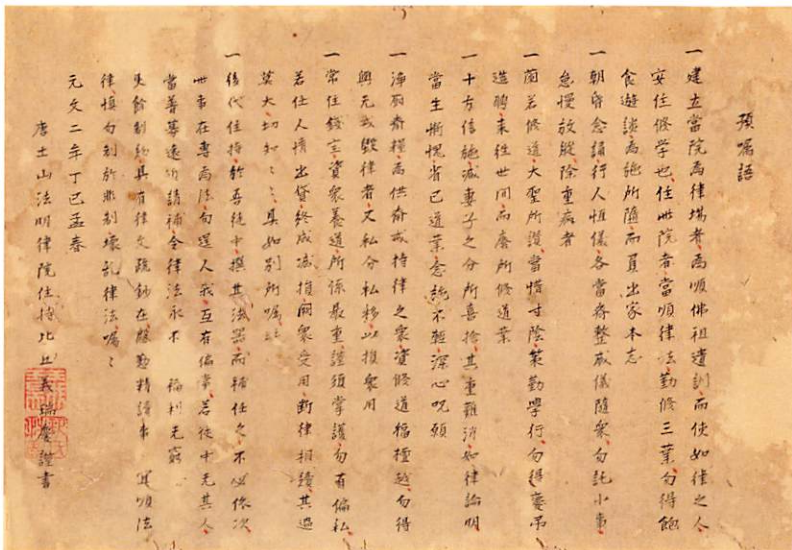 預囑語
一建立當院為律場者為順佛祖遺訓而使如律之人
安住修學也住此院者當順律法勤修三業勿得飽
食遊談為施所墮而負出家本志
一朝昏念誦行人恒儀各當齊整威儀隨眾勿託小事
怠慢放縱除重病者
一蘭若修道大聖所讚當惜寸陰策勤學行勿得慶弔
造聘來往世間而廢所修道業
一十方信施減妻子之分所喜捨其重難消如律論明
當生慚愧省己道業念純不輕深心咒願
一淨厨齋糧為供齋戒持律之眾資修道福檀越勿得
與无戒毀律者又私分私移以損眾用
一常住錢宝資眾養道所係最重謹須掌護勿有偏私
若任人情出貸終成減損闕眾受用断律相續其過
莫大切知〻〻具如別所囑
一後代住持於吾徒中撰其法器而補任之不必依次
世事在專為法勿選人我互有偏黨若徒中无其人
當普募遠方請補令律法永不 福利无窮
更餘制約具有律文疏鈔在慇懃精讀弗 冥順法
律慎勿制於非制壞乱律法囑〻
元文二年丁巳孟春
唐土山法明律院住持比丘義瑞慶謹書